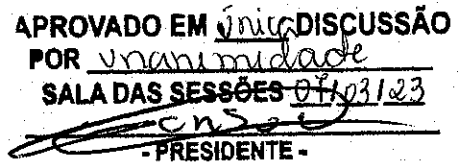 APROVADO EM única DISCUSSÃO
POR unanimidade
SALA DAS SESSÕES 07/03/23
- PRESIDENTE -